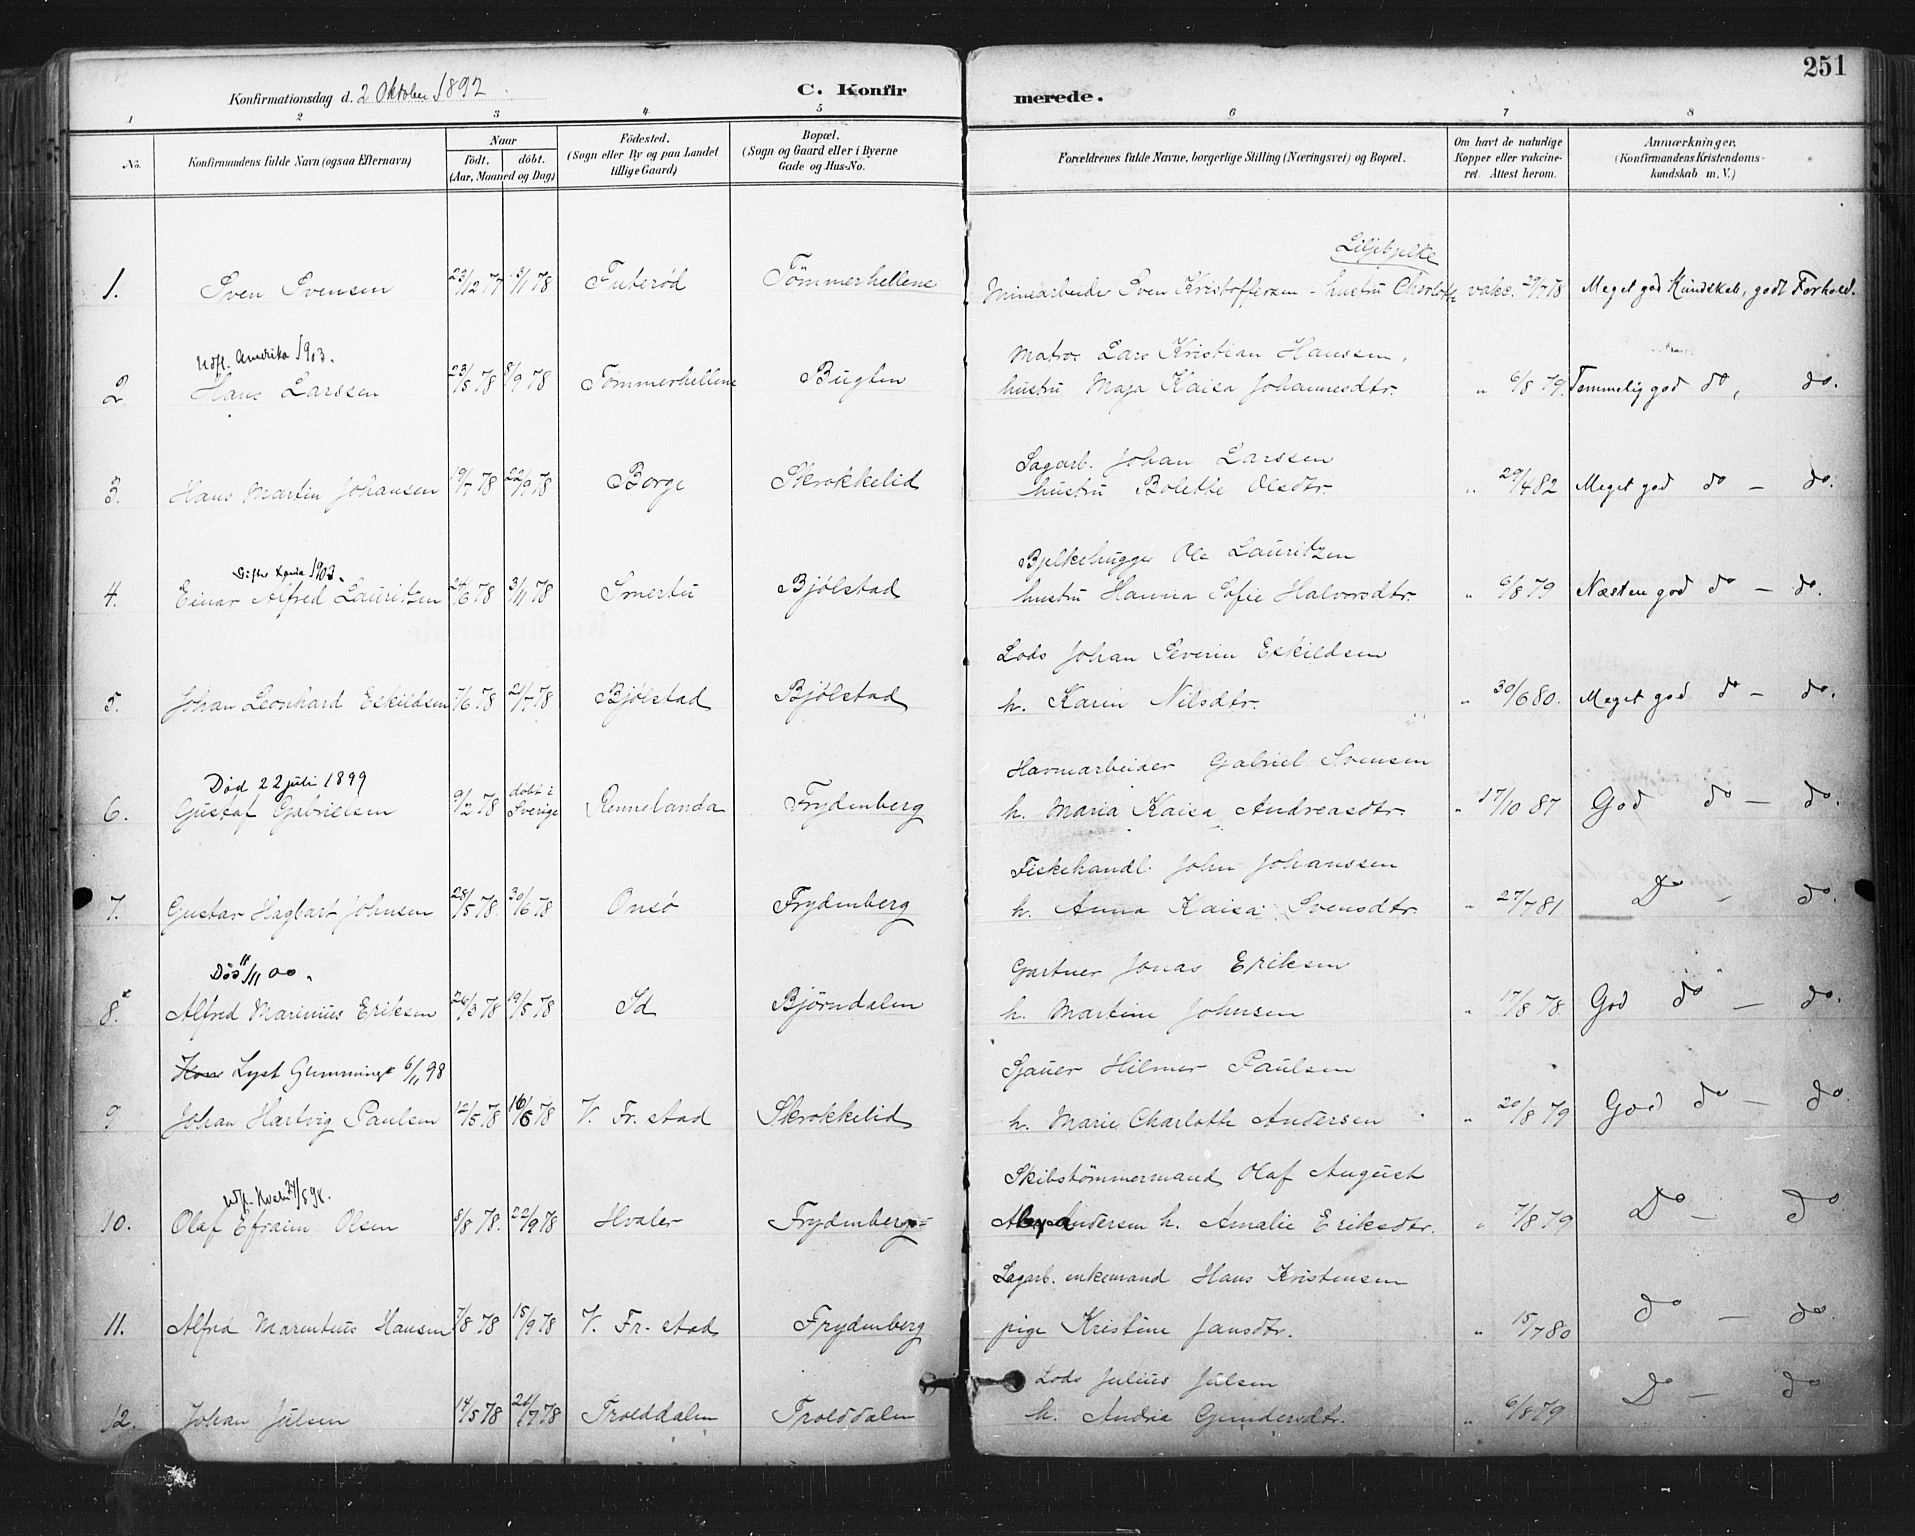 251
Konfirmationsdag d. 2 Oktober 1892. C. Konfirmerede.
1 2 3 4 5 6 7 8
No. Konfirmandens fulde Navn (ogsaa Efternavn) Naar født. døbt. (Aar, Maaned og Dag) Födested. (Sogn eller By og paa Landet tillige Gaard) Bopæl. (Sogn og Gaard eller i Byerne Gade og Hus-No. Forældrenes fulde Navne, borgerlige Stilling (Næringsvei) og Bopæl. Om havt de naturlige Kopper eller vakcineret. Attest herom. Anmærkninger. (Konfirmandens Kristendomskundskab m. V.)
Liljebjelke
1. Sven Svensen 23/12 77 3/1 78 Tuterød Tömmerhellene Minearbeider Sven Kristoffersen - hustru Charlotte vakc. 29/7 78 Meget god Kundskab, godt Forhold.
Udfl. Amerika 1903.
Matros Lars Kristian Hanssen,
2 Hans Larssen 23/5 78 8/9 78 Tømmerhellene Bugten hustru Maja Kaisa Johannesdtr. " 6/8 79. Temmelig god do, do.
Sagarb. Johan Larssen
3. Hans Martin Johansen 19/7 78 22/9 78 Borge Skrokkelid hustru Bolette Olsdtr. " 29/4 82 Meget god do - do.
1903.
Bjelkehugger Ole Lauritzen
4. Einar Alfred Lauritzen 24/6 78 3/11 78 Smertu Bjölstad hustru Hanna Sofie Halvorsdtr. " 6/8 79 Næsten god do - do.
Lods Johan Severin Eskildsen
5. Johan Leonhard Eskildsen 7/6 78 21/7 78 Bjölstad Bjölstad h. Karin Nilsdtr. " 30/6 80. Meget god do - do.
Død 22 juli 1899
Havnearbeider Gabriel Svensen
6. Gustaf Gabrielsen 9/2 78 døbt i Sverige Rennelanda Frydenberg h. Maria Kaisa Andreasdtr. " 17/10 87 God do - do.
Fiskehandl. John Johanssen
7. Gustav Hagbart Johnsen 28/5 78. 30/6 78 Onsö Frydenberg h. Anna Kaisa Svensdtr. " 27/7 81 Do - do.
Död 11/11 00.
Gartner Jonas Eriksen
8. Alfred Marinius Eriksen 26/3 78 19/5 78 Id Bjørndalen h. Martine Johnsen " 17/8 78 God do - do.
Lyst Glemminge 6/11 98
Sjauer Hilmer Paulsen
9 Johan Hartvig Paulsen 12/5 78 16/6 78 V. Fr. stad Skrokkelid h. Marie Charlotte Andersen " 20/8 79 God do - do.
Skibstömmermand Olaf August
10. Olaf Efraim Olsen 8/8 78. 22/9 78 Hvaler Frydenberg= Andersen h. Amalie Eriksdtr. " 7/8 79 Do - do
Sagarb. enkemand Hans Kristensen
11. Alfred Marentius Hansen 7/8 78 15/9 78 V. Fr. stad Frydenberg pige Kristine Jansdtr. " 15/7 80 do - do
Lods Julius Julsen
12. Johan Julsen 14/5 78 21/7 78 Trolddalen Trolddalen h. Andrea Gundersdtr. " 6/8 79 Do - do